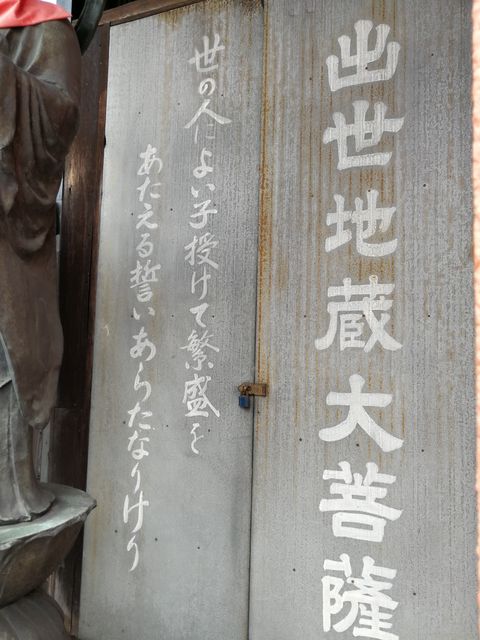 出世地蔵大菩薩
世の人によい子授けて繁盛を
あたえる誓いあらたなりけり